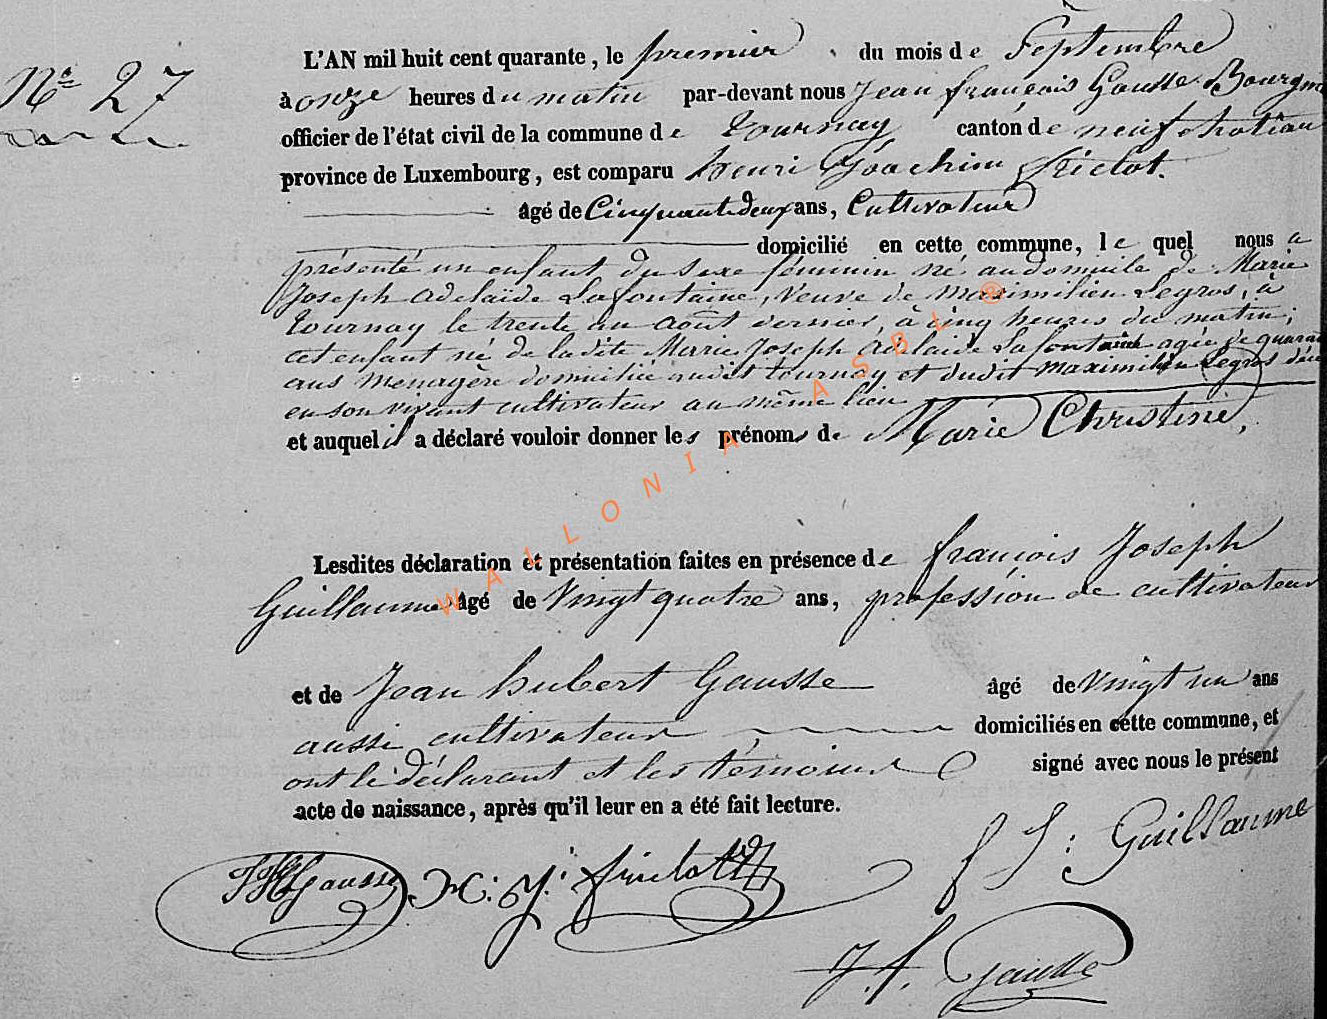 L'AN mil huit cent quarante, le premier du mois de Septembre
Nº 27
à onze heures du matin par-devant nous Jean françois Gausse Bourgm
officier de l'état civil de la commune de tournay canton de neufchateau
province de Luxembourg, est comparu henri Joachim
âgé de Cinquante deux ans, Cultivateur
domicilié en cette commune, le quel nous a
présenté un enfant du sexe féminin né au domicile de Marie
Joseph adelaïde Lafontaine, veuve de maximilien Legros, à
tournay le trente un août dernier, à cinq heures du matin;
cet enfant né de ladite Marie Joseph adelaïde Lafontaine agée de quaran
ans menagère domiciliée audit tournay et dudit maximilien Legros
en son vivant cultivateur au même lieu
et auquel il a déclaré vouloir donner les prénoms de Marie Christine,
Lesdites déclaration et présentation faites en présence de françois Joseph
Guillaume âgé de Vingt quatre ans, profession de cultivateur
et de Jean hubert Gausse âgé de Vingt un ans
aussi cultivateur domiciliés en cette commune, et
ont le déclarant et les témoins signé avec nous le présent
acte de naissance, après qu'il leur en a été fait lecture.
f J: Guillaume
JH Gausse H: J:
J. f. Gausse
WALLONIA ASBL ®